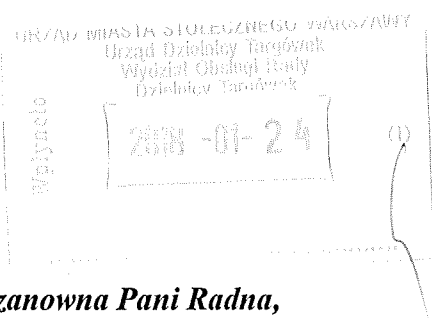 URZĄD MIASTA STOŁECZNEGO WARSZAWY
Urząd Dzielnicy Targówek
Wydział Obsługi Rady
Dzielnicy Targówek
Wpłynęło
2018 -01- 2 4
(1)
zanowna Pani Radna,